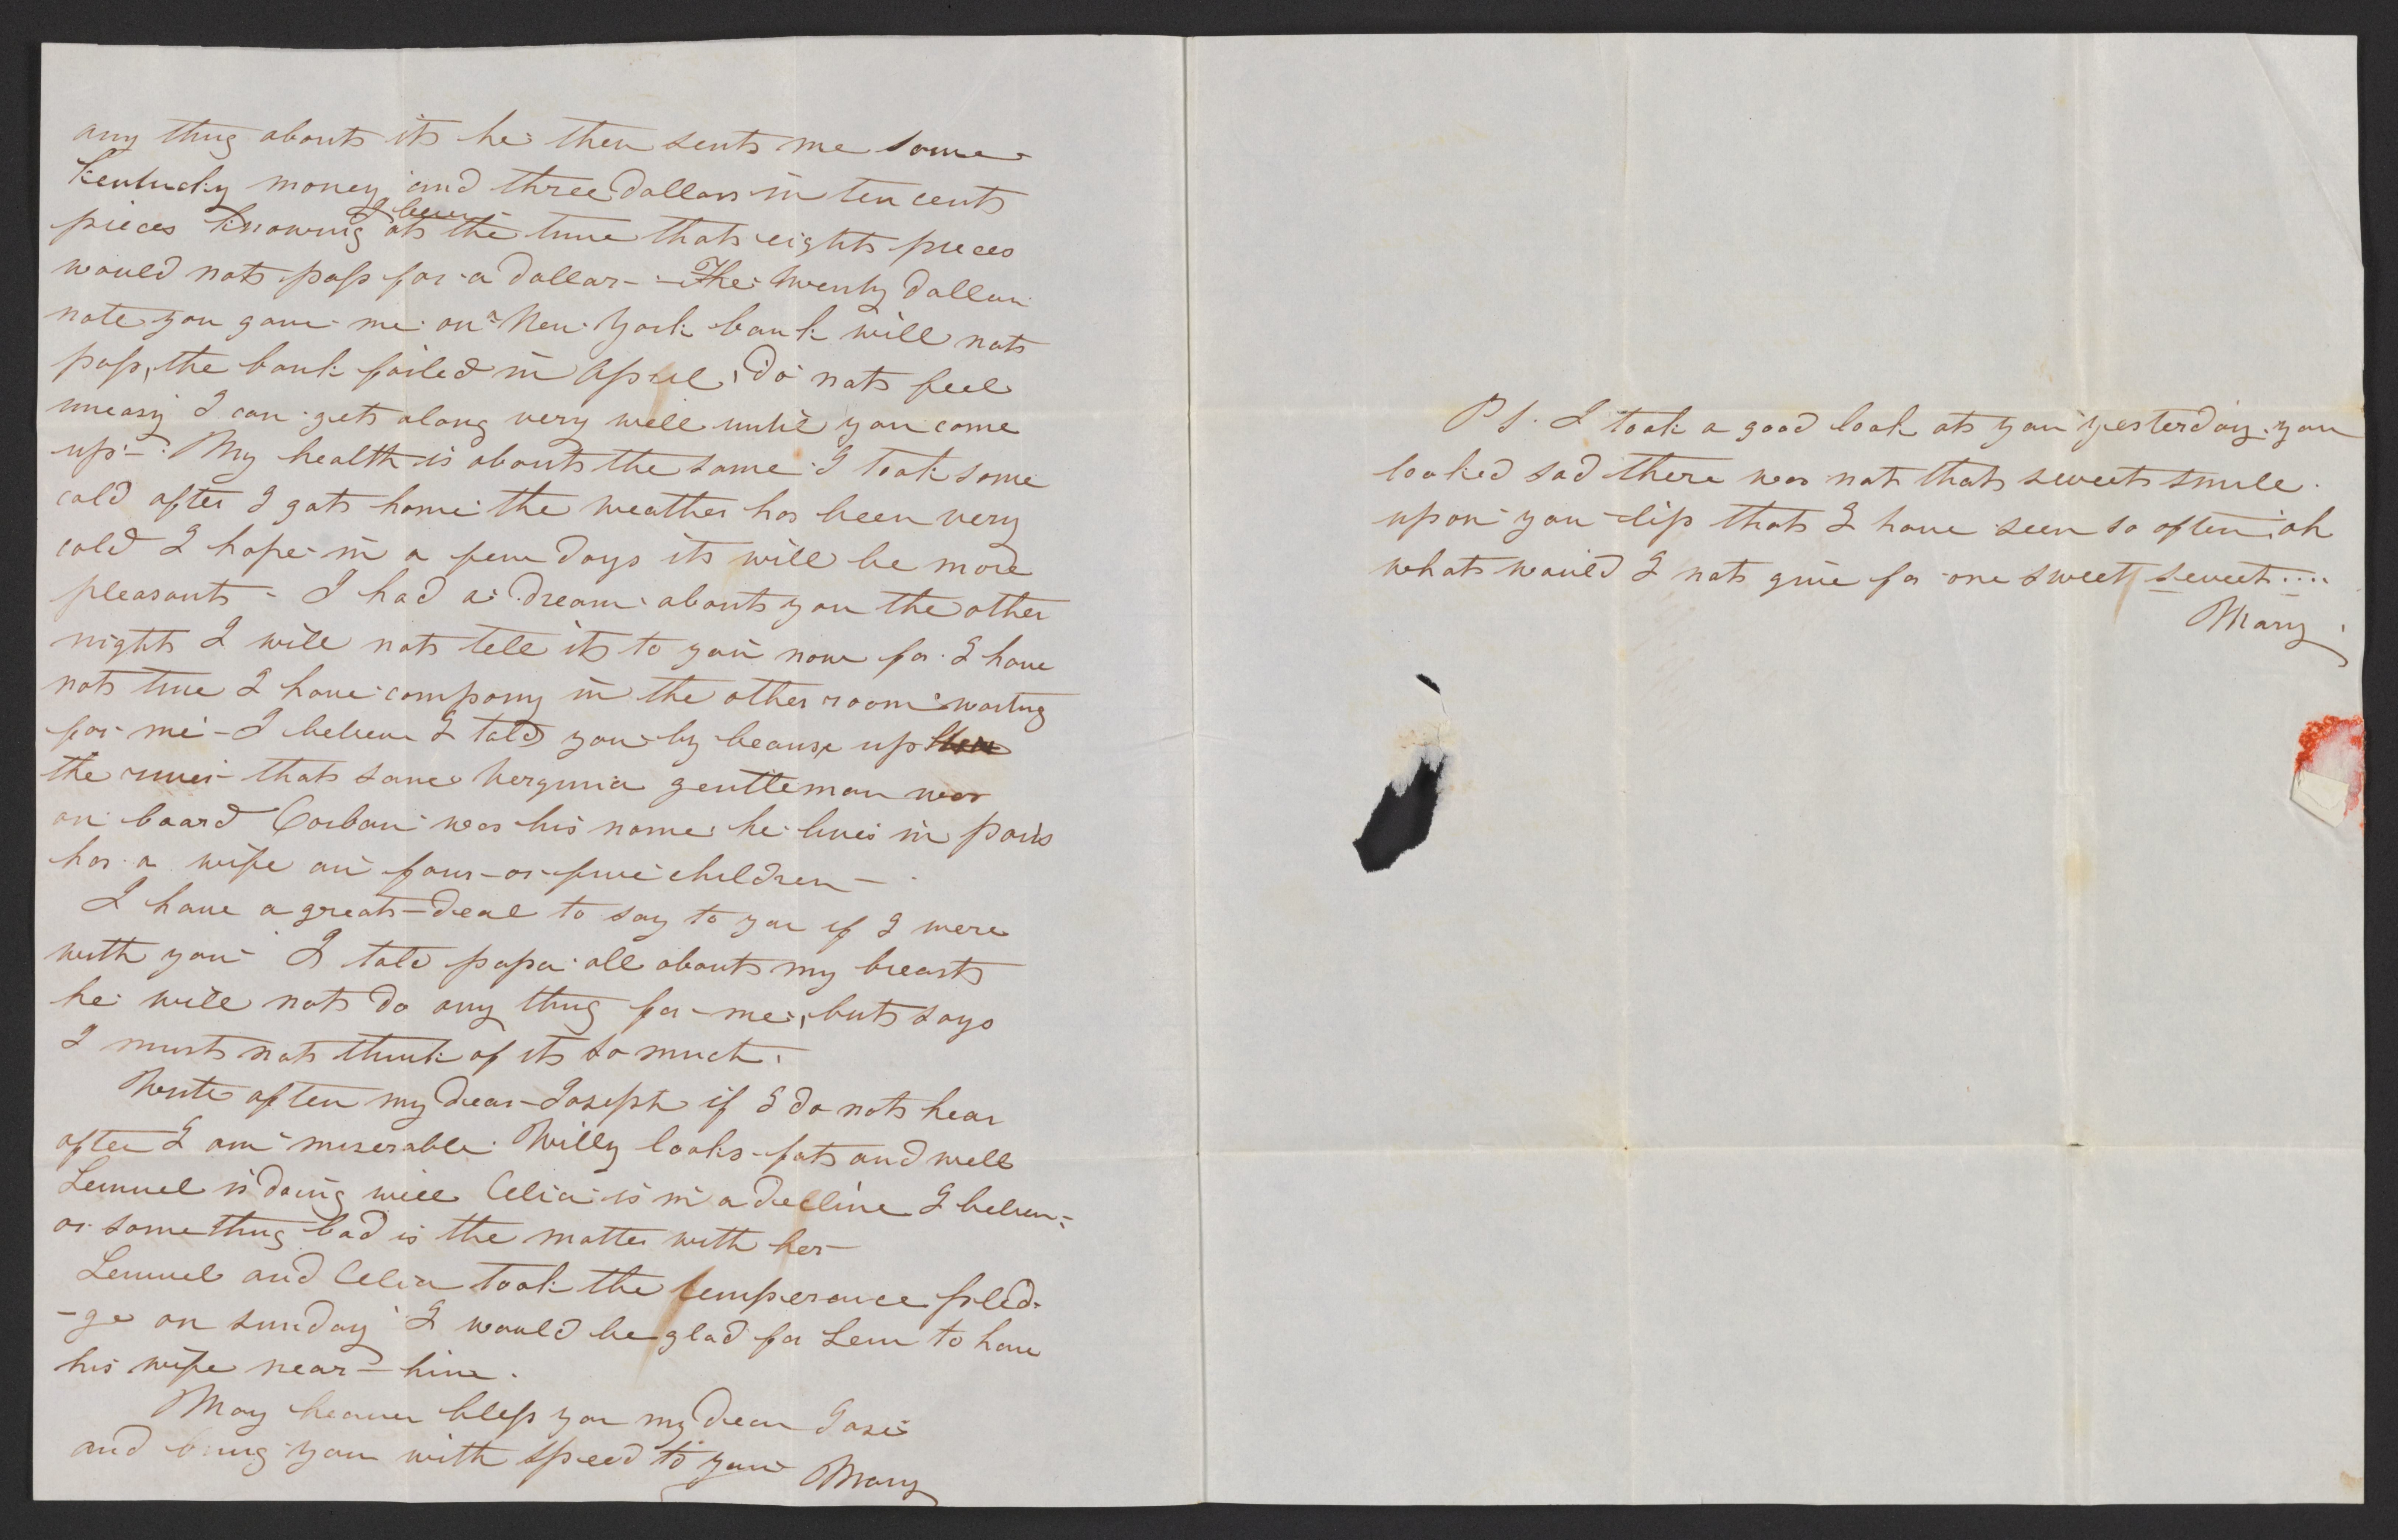 any thing about it he then sent me some
Kentucky money and three dollars in ten cent
pieces knowing at the time that eight pieces
would not pass for a dollar - The twenty dollar
note you gave me on New York bank will not
pass, the bank failed in April, do not feel
uneasy I can get along very well until you come
up - My health is about the same I took some
cold after I got home the weather has been very
cold I hope in a few days it will be more
pleasant - I had a dream about you the other
night I will not tell it to you now for I have
not time I have company in the other room waiting
for me - I believe I told you by up
the river that same Verginia gentleman was
on board Corban was his name he lives in paris
has a wife an four or five children -
I have a great deal to say to you if I were
with you I told papa all about my breast
he will not do any thing for me, but says
I must not think of it so much.
Write often my dear Joseph if I do not hear
often I am miserable Willy looks fat and well
Lemuel is doing well Celia is in a decline I believe
or some thing bad is the matter with her -
Lemuel and Celia took the temperance pled-
-ge on sunday I would be glad for Lem to have
his wife near him.
May heaven bless you my dear Jose
and bring you with speed to your Mary
P S. I took a good look at you yesterday. you
looked sad there was not that sweet smile
upon you lip that I have seen so often oh
what would I not give for one sweet sweet....
Mary